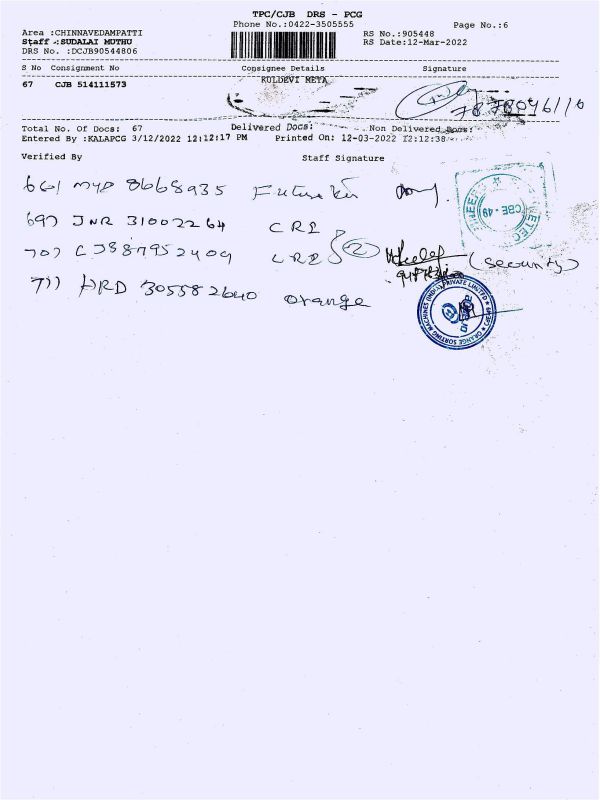 TPC/CJB DRS - PCG
Phone No.:0422-3505555
Page No.:6
Area :CHINNAVEDAMPATTI
Staff :SUDALAI MUTHU
DRS No. :DCJB90544806
RS No.:905448
RS Date:12-Mar-2022
S No Consignment No Consignee Details Signature
67 CJB 514111573 KULDEVI META
Total No. Of Docs: 67 Delivered Docs: Non Delivered Docs:
Entered By :KALAPCG 3/12/2022 12:12:17 PM Printed On: 12-03-2022 12:12:38
Verified By Staff Signature
CBE - 49
697 JNR 31002264 CRI
(security)
HRD 305582640 orange
ORANGE SORTING MACHINES (INDIA) PRIVATE LIMITED